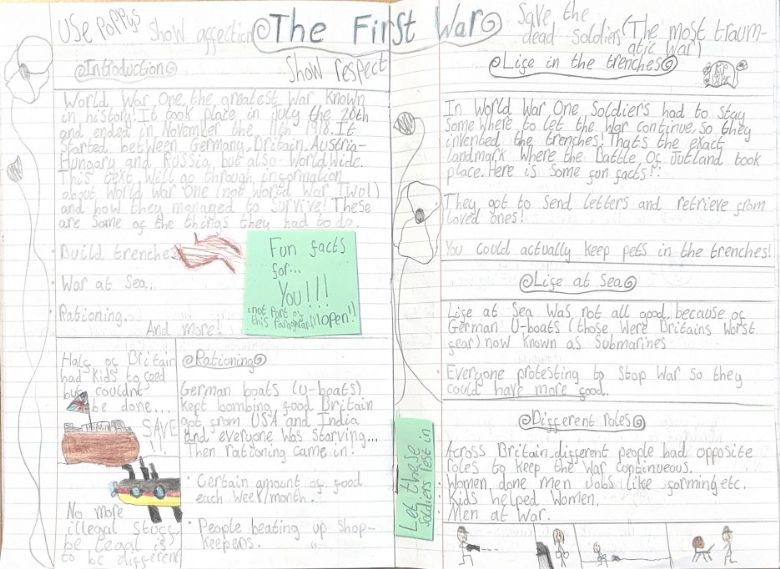 USE POPPYS show affection
The First War
Save the
dead soldiers (The most traum-
atic war)
Show respect
Introduction
World War One, the greatest War known
in history! It took place in july the 28th
and ended in November the 11th 1918. It
Started between Germany, Britain, Austria-
Hungary and Russia, but also World Wide.
This text will go through information
about World War One (not World War Two!)
and how they managed to Survive! These
are some of the things they had to do.
· Build trenches
· War at Sea...
· Rationing...
And more!
Fun facts
for...
You!!!
(not part of
this paragraph!) (open!)
Half of Britain
had kids to feed
but couldn't
be done...
SAVE
!!!
No more
illegal stuff,
be legal is
to be different
Rationing
German boats (U-boats)
kept bombing food Britain
got from USA and India
and everyone was starving...
Then rationing came in!
· Certain amount of food
each Week/month.
· People beating up Shop-
keepers.
Life in the trenches
In World War One Soldiers had to stay
Some where to let the war continue, so they
invented the trenches! Thats the exact
landmark where the Battle Of Jutland took
place. Here is Some fun facts!!
They got to send letters and retrieve from
loved ones!
You could actually keep pets in the trenches!
Life at Sea
Life at Sea was not all good, because of
German U-boats (those were Britains worst
fear) now known as Submarines
· Everyone protesting to Stop War so they
could have more food.
Different roles
Across Britain, different people had opposite
roles to keep the War continuous.
· Women done men Jobs like farming etc.
· Kids helped Women.
· Men at War.
Let these
Soldiers rest in